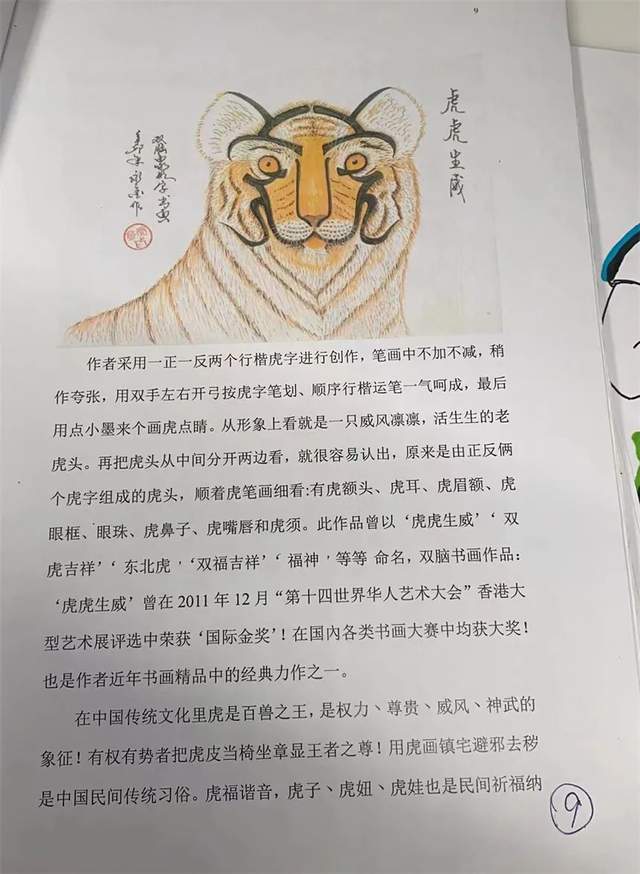 9
虎虎生威
作者采用一正一反两个行楷虎字进行创作，笔画中不加不减，稍
作夸张，用双手左右开弓按虎字笔划、顺序行楷运笔一气呵成，最后
用点小墨来个画虎点睛。从形象上看就是一只威风凛凛，活生生的老
虎头。再把虎头从中间分开两边看，就很容易认出，原来是由正反俩
个虎字组成的虎头，顺着虎笔画细看:有虎额头、虎耳、虎眉额、虎
眼框、眼珠、虎鼻子、虎嘴唇和虎须。此作品曾以‘虎虎生威’‘双
虎吉祥’‘东北虎’‘双福吉祥’‘福神’等等 命名，双脑书画作品：
‘虎虎生威’曾在 2011 年 12 月“第十四世界华人艺术大会”香港大
型艺术展评选中荣获‘国际金奖’！在国内各类书画大赛中均获大奖！
也是作者近年书画精品中的经典力作之一。
在中国传统文化里虎是百兽之王，是权力、尊贵、威风、神武的
象征！有权有势者把虎皮当椅坐章显王者之尊！用虎画镇宅避邪去秽
是中国民间传统习俗。虎福谐音，虎子、虎妞、虎娃也是民间祈福纳
9